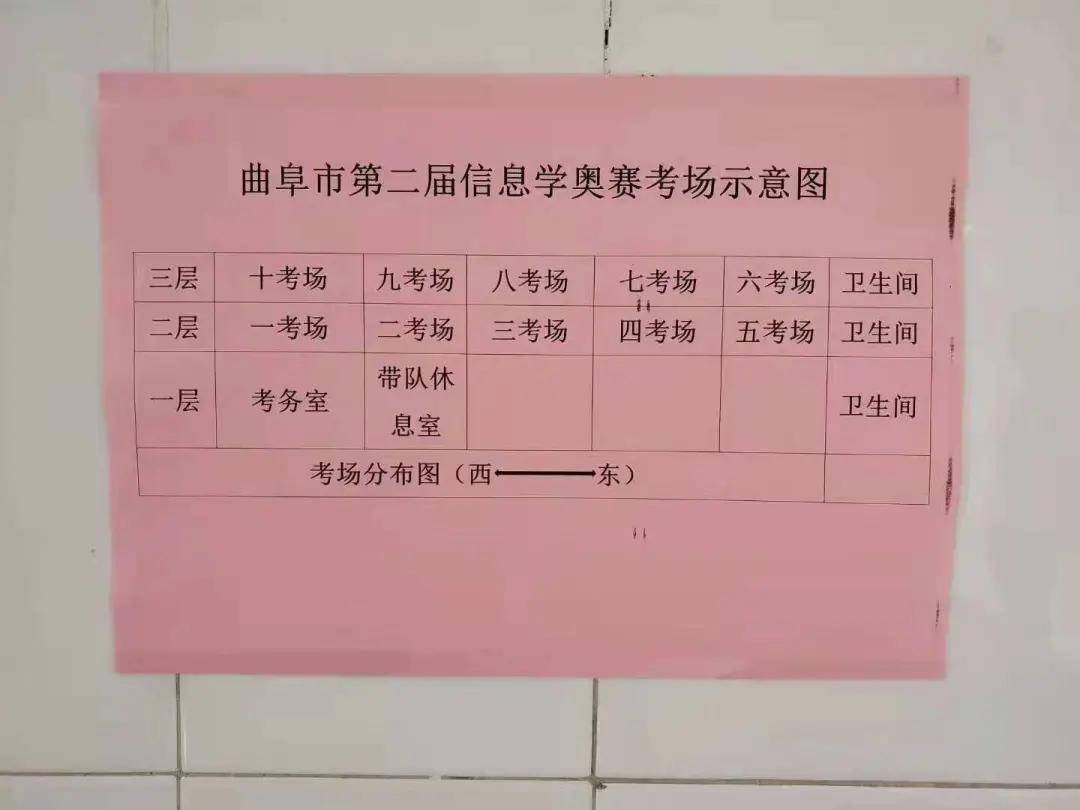 曲阜市第二届信息学奥赛考场示意图
三层 十考场 九考场 八考场 七考场 六考场 卫生间
二层 一考场 二考场 三考场 四考场 五考场 卫生间
一层 考务室 带队休息室 卫生间
考场分布图（西⟷东）